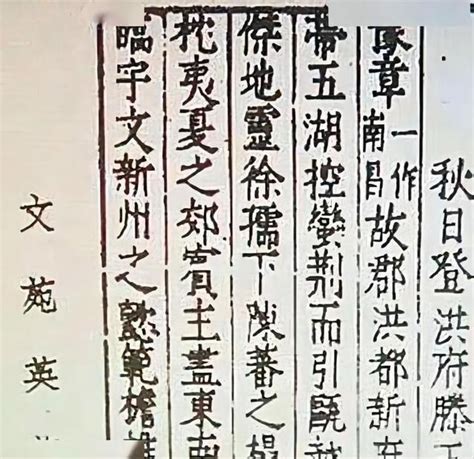 秋日登洪府滕王
豫章一作南昌故郡洪都新
帶五湖控蠻荆而引甌越
傑地靈徐孺下陳蕃之榻
枕夷夏之郊賓主盡東南
臨宇文新州之懿範檐帷
文苑英